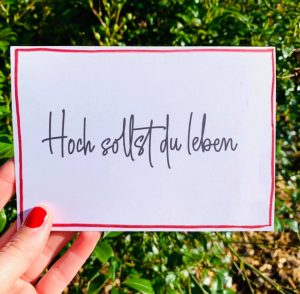 Hoch sollst du leben